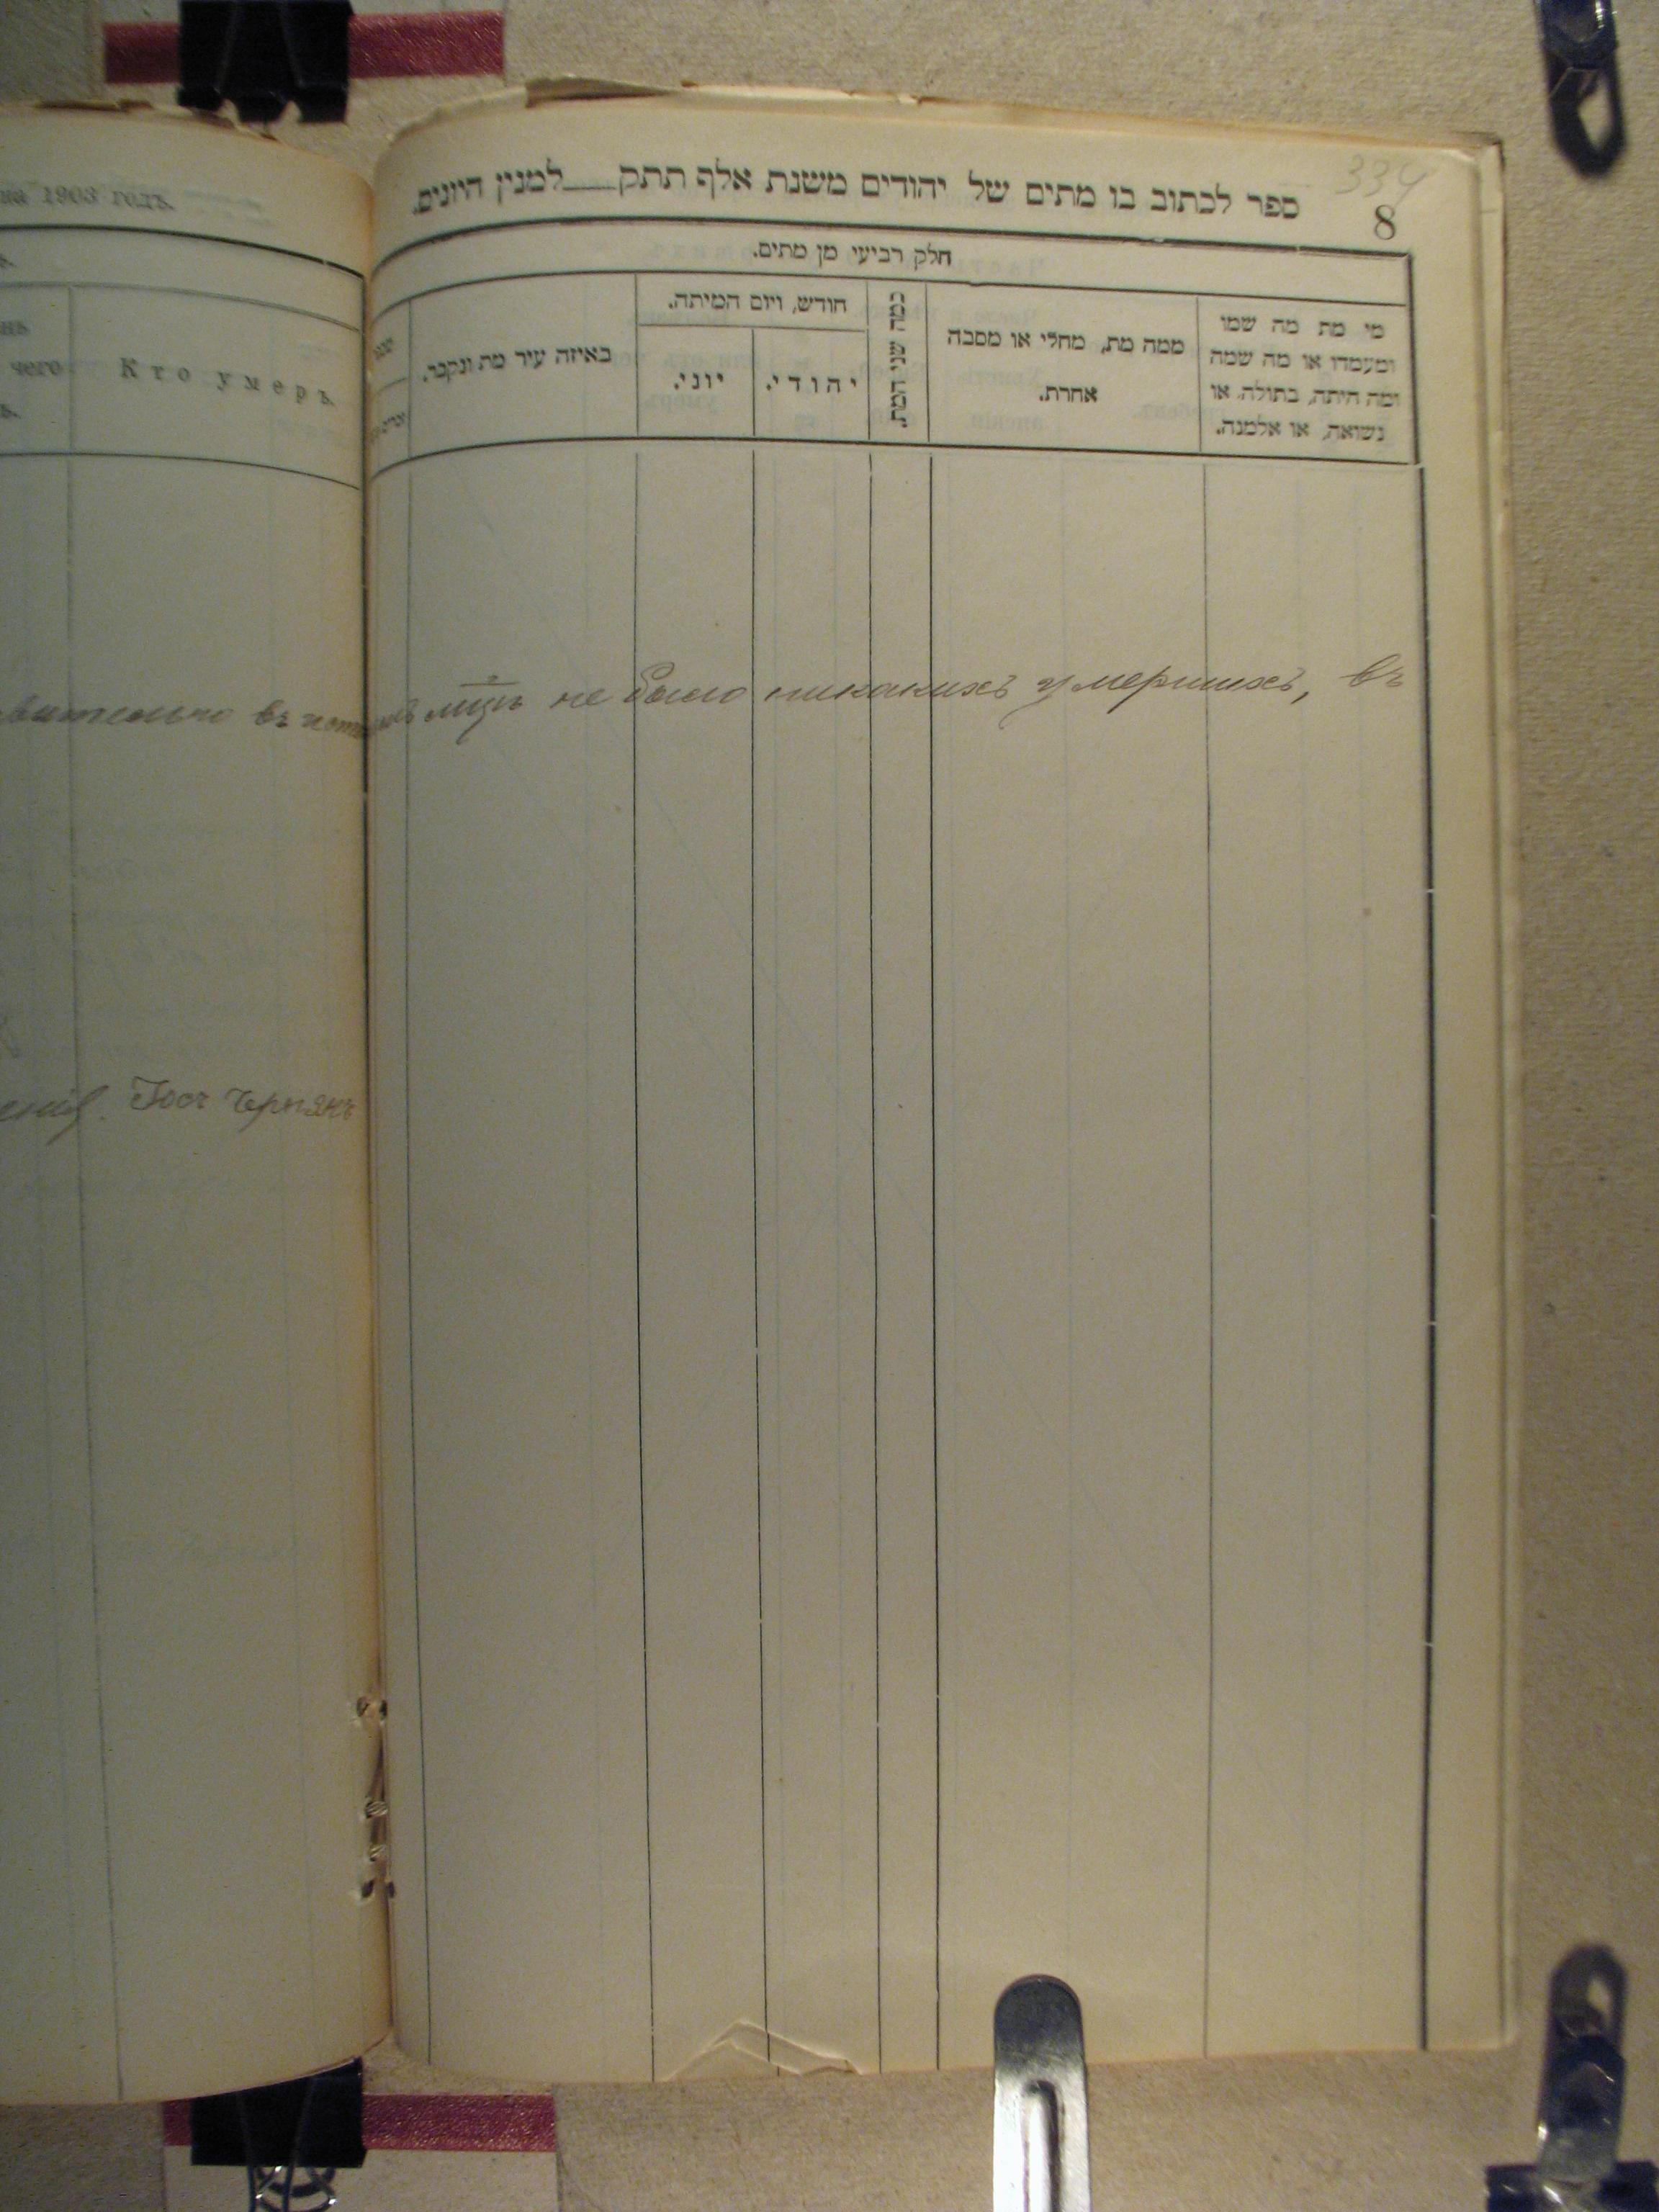 на 1903 годъ.
нь
чего
ъ.
Кто умеръ.
вительно въ
Іосъ
334
8
ספר לכתוב בו מתים של יהודים משנת אלף תתק למנין היונים.
חלק רביעי מן מתים.
מי מת מה שמו
ומעמדו או מה שמה
ומה היתה, בתולה, או
נשואה, או אלמנה.
ממה מת, מחלי או מסבה
אחרת.
כמה שני המת.
חודש, ויום המיתה.
יהודי.
יוני.
באיזה עיר מת ונקבר.
не было никакихъ умершихъ, въ